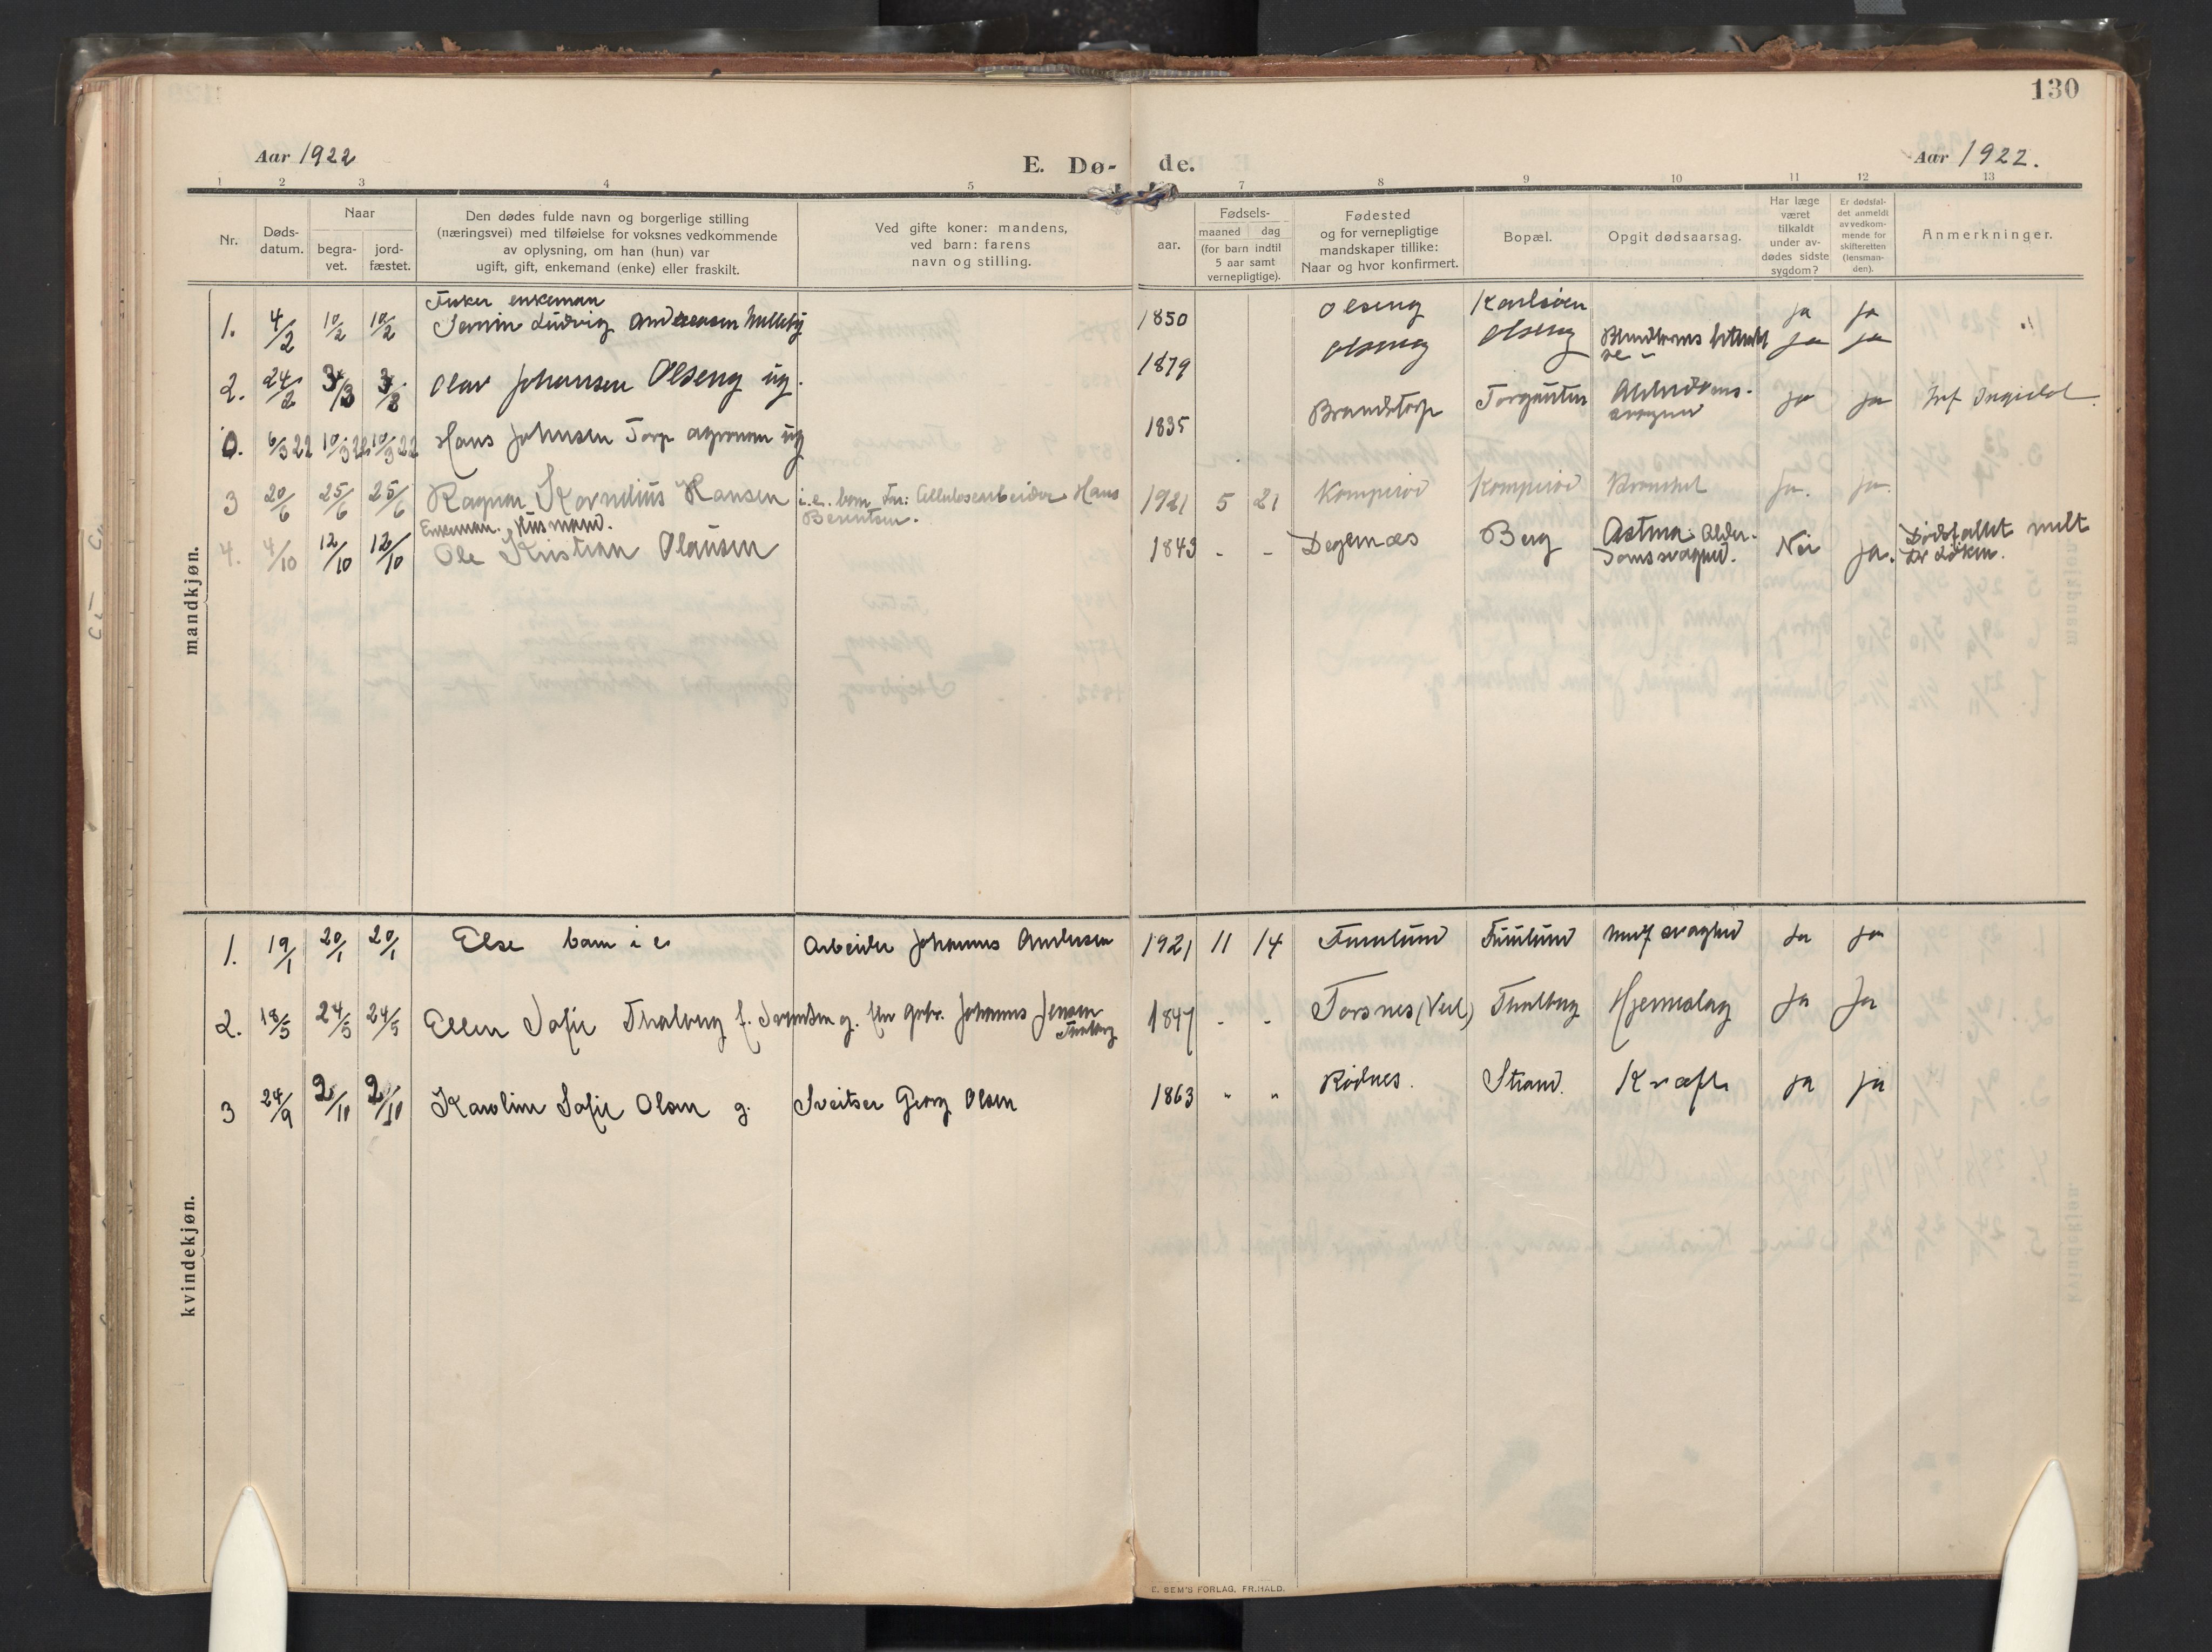 130
Aar 1922
E. Dø- de.
Aar 1922.
1 2 3 4 5 7 8 9 10 11 12 13
Nr.
Døds-
datum.
Naar
begra-
vet.
jord-
fæstet.
Den dødes fulde navn og borgerlige stilling
(næringsvei) med tilføielse for voksnes vedkommende
av oplysning, om han (hun) var
ugift, gift, enkemand (enke) eller fraskilt.
Ved gifte koner: mandens,
ved barn: farens
navn og stilling.
aar.
Fødsels-
maaned dag
(for barn indtil
5 aar samt
vernepligtige).
Fødested
og for vernepligtige
mandskaper tillike:
Naar og hvor konfirmert.
Bopæl.
Opgit dødsaarsag.
Har læge
været
tilkaldt
under av-
dødes sidste
sygdom?
Er dødsfal-
det anmeldt
av vedkom-
mende for
skifteretten
(lensman-
den).
Anmerkninger.
mandkjøn.
Fisker enkeman
1. 4/2 10/2 10/2 Ludvig Andreasen 1850 Olseng ja ja
2. 24/2 3/3 3/3 Olav Johansen Olseng ug. 1879 Olseng Olseng ja ja
0. 6/3 22 10/3 22 10/3 22 Hans Johnsen Torp agronom ug 1835 Brandstorp Torgauten ja ja
3 20/6 25/6 25/6 Ragnar Kornelius Hansen i.e. barn Far: Cellulosearbeider Hans 1921 5 21 Komperød Komperød Bronkit ja. ja.
Berentsen.
Enkeman. Husmand.
4. 4/10 12/10 12/10 Ole Kristian Olausen 1843 - - Degernæs Berg Astma. Alder- Nei ja. Dødsfallet melt
domssvaghed.
kvindekjøn.
1. 19/1 20/1 20/1 Else barn i e. Arbeider Johannes Andersen 1921 11 14 Furulund Furulund svaghed Ja ja
2. 18/5 24/5 24/5 Ellen Sofie Thalberg f. Svendsen g. Johannes Jensen 1847 - - Torsnes Thalberg Hjerneslag Ja Ja
Thalberg
3 24/9 2/10 2/10 Karoline Sofie Olsen g. Sveitser Georg Olsen 1863 " " Rødnes. Strand. Kræft ja ja
E. SEM'S FORLAG, FR.HALD.